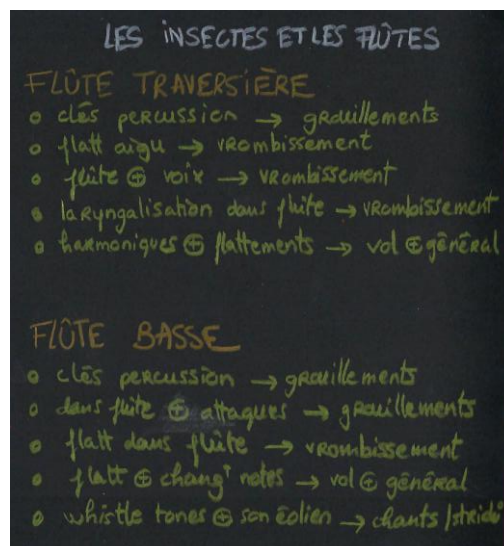 LES INSECTES ET LES FLÛTES
FLÛTE TRAVERSIÈRE
o clés percussion → grouillements
o flatt aigu → vrombissement
o flûte ⊕ voix → vrombissement
o laryngalisation dans flûte → vrombissement
o harmoniques ⊕ flattements → vol ⊕ général
FLÛTE BASSE
o clés percussion → grouillements
o dans flûte ⊕ attaques → grouillements
o flatt dans flûte → vrombissement
o flatt ⊕ changt notes → vol ⊕ général
o whistle tones ⊕ son éolien → chants /